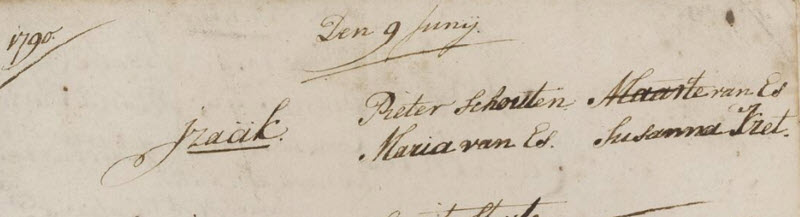 1790. Den 9 Junij.
Pieter Schouten. Maarte van Es
Izaäk. Maria van Es. Susanna Tret.